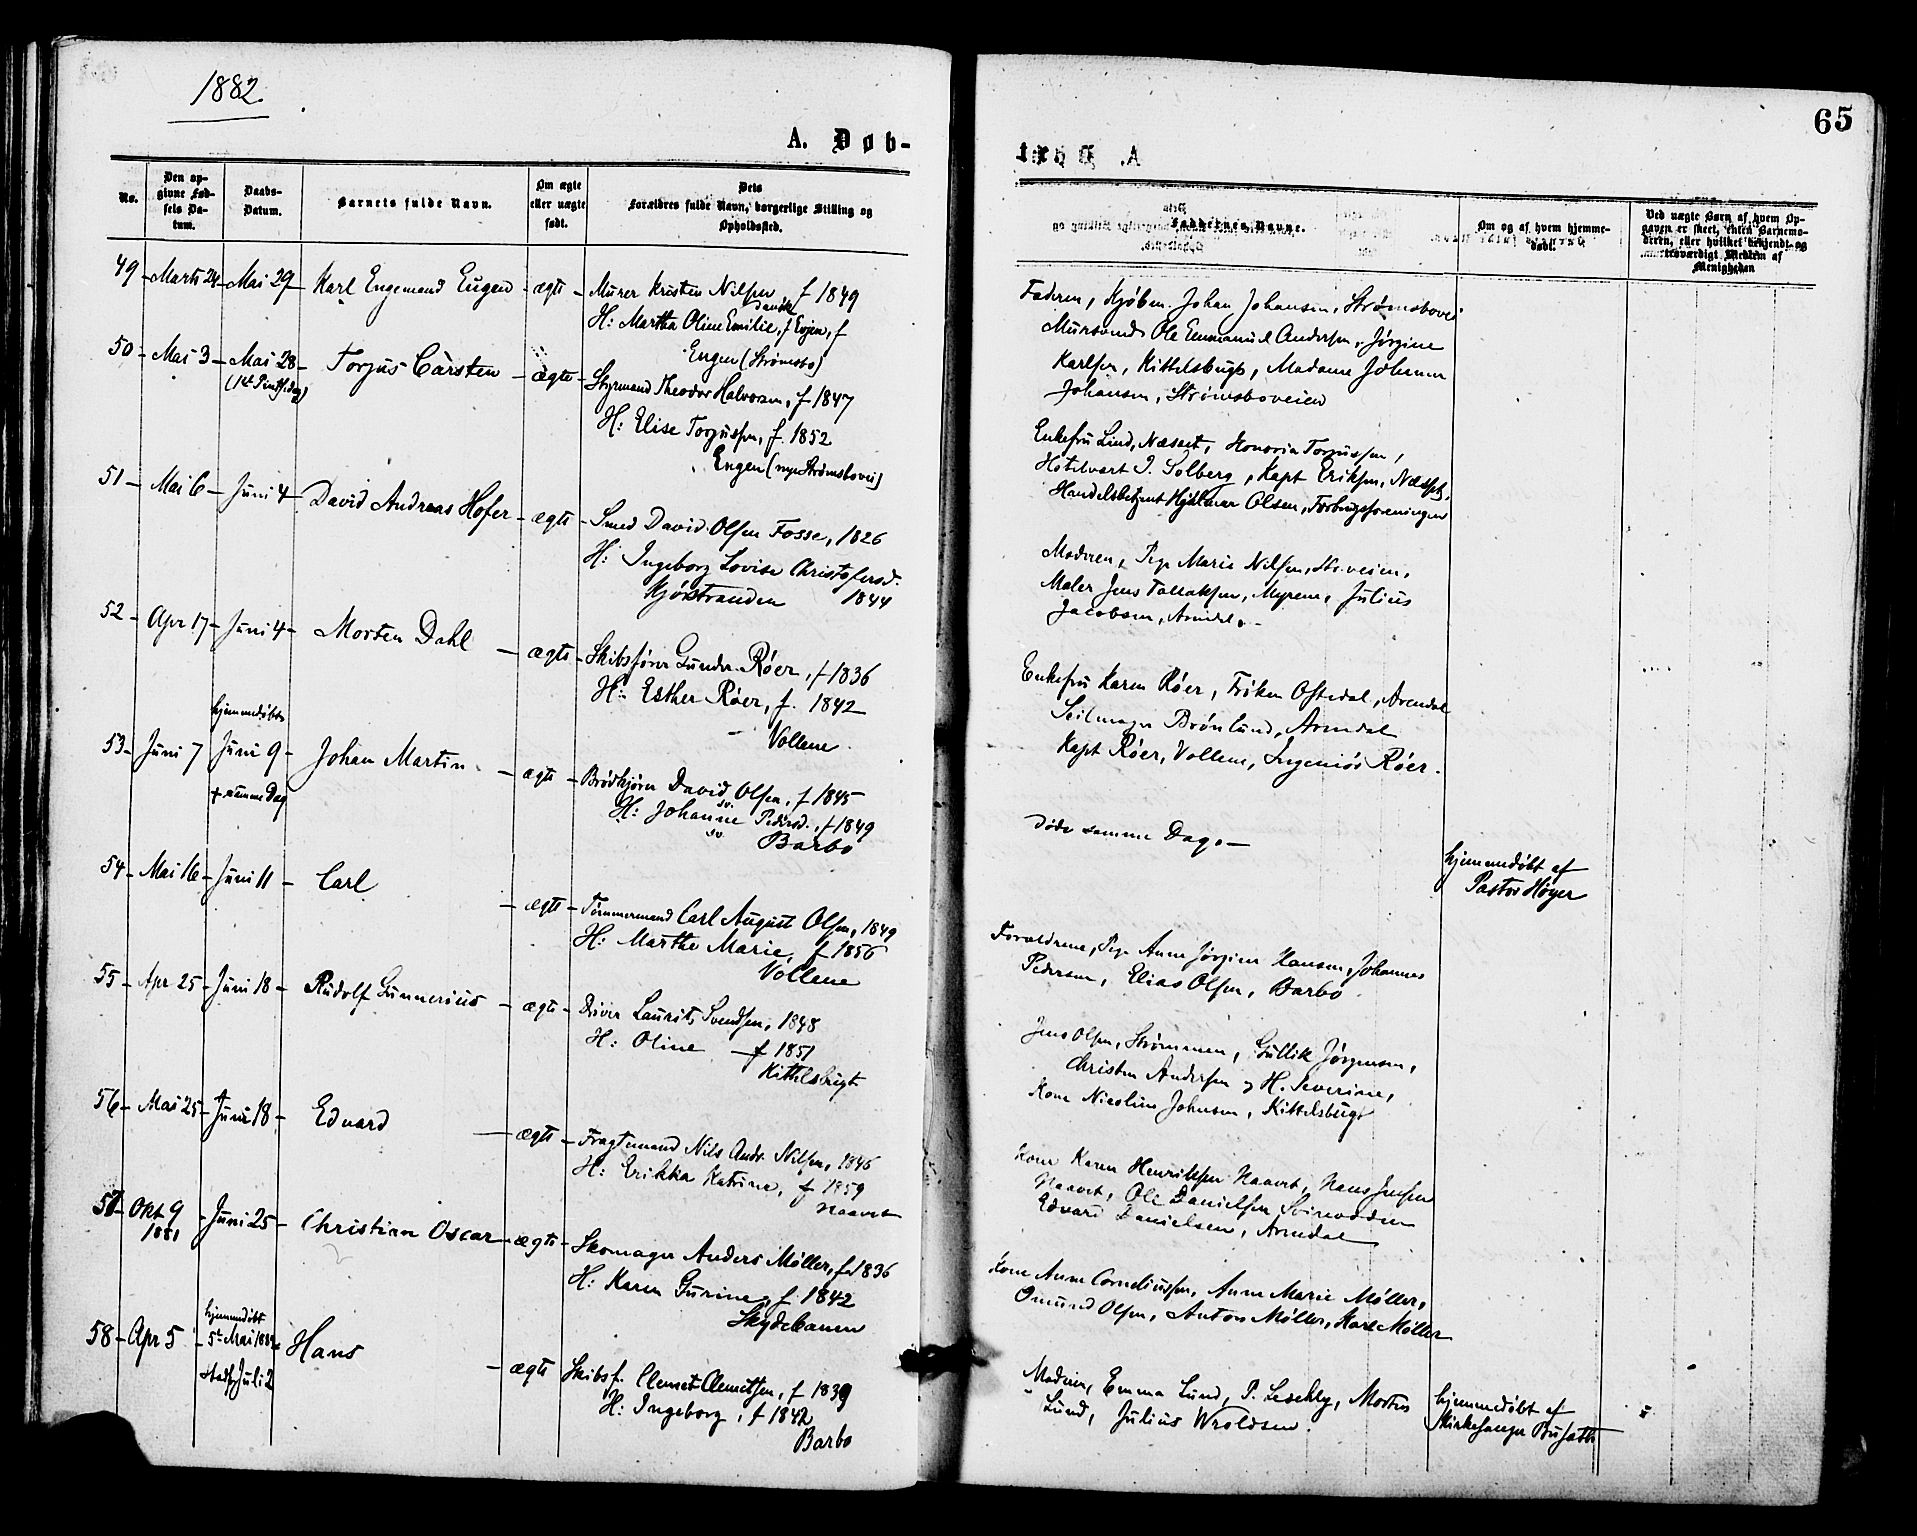 1882.
A. Døb-
No.
Den op-
givne Fød-
sels Da-
tum.
Daabs-
Datum.
Barnets fulde Navn.
Om ægte
eller uægte
født.
Dets
Forældres fulde Navn, borgerlige Stilling og
Opholdssted.
49 – Marts 24 – Mai 29 – Karl Engemand Eugen – ægte – Murer Kristen Nilsen, f 1849
H: Martha Oline Emilie, f
Engen (Strømsbo)
50 – Mai 3 – Mai 28 – Torjus Carsten – ægte – Styrmand Theodor Halvorsen, f 1847
(1st Pintsedag)
H: Elise Torjussen, f. 1852
Engen (nye Strømsbovei)
51 – Mai 6 – Juni 4 – David Andreas Hofer – ægte – Smed David Olsen Fosse, 1826
H: Ingeborg Lovise Christofersd.
Kjøistranden 1844
52 – Apr 17 – Juni 4 – Morten Dahl – ægte – Skibsfører Gunder Røer, f 1836
H: Esther Røer, f. 1842
Vollene
hjemmedøbt
53 – Juni 7 Juni 9 – Johan Martin – ægte – Brødkjører David Olsen, f 1845
† samme Dag
H: Johanne Pedersd., f 1849
Barbo
54 – Mai 16 – Juni 11 – Carl – ægte – Tømmermand Carl August Olsen, 1849
H: Marthe Marie, f 1856
Vollene
55 – Apr 25 – Juni 18 – Rudolf Gunnerius – ægte – Driver Laurits Svendsen, 1848
H: Oline – f 1851
Kittelsbugt
56 – Mai 25 – Juni 18 – Edvard – ægte – Fragtemand Nils Andr. Nilsen, 1846
H: Erikka Katrine, f 1859
Naavet
57 – Okt 9 – Juni 25 – Christian Oscar – ægte – Skomager Anders Møller, f 1836
1881
H: Karen Gurine, f 1842
Skydebanen
hjemmedøbt
58 – Apr 5 – 5te Mai 1882 – Hans – ægte Skibsf. Clemet Clemetsen, f 1839
Stadf Juli 2
H: Ingeborg, f 1842
Barbo
65
Faddernes Navne.
Om og af hvem hjemme-
døbt.
Ved uægte Børn af hvem Op-
gaven er skeet, enten Barnemo-
deren, eller hvilket bekjendt og
troværdigt Medlem af
Menigheden
Faderen, Kjøbm. Johan Johansen, Strømsbovei
Mursvend Ole Emmanuel Andersen, Jørgine
Karlsen, Kittelsbugt, Madame Johanne
Johansen, Strømsboveien
Enkefru Lind, Næsset, Honoria Torjussen,
Hotelvært J. Solberg, Kapt Eriksen, Næsset,
Handelsbetjent Hjalmar Olsen, Forbrugsforeningen
Moderen, Pige Marie Nilsen, Str.veien,
Maler Jens Tallaksen, Myrene, Julius
Jacobsen, Arendal. –
Enkefru Karen Røer, Frøken Oftedal, Arendal
Seilmager Brønlund, Arendal
Kapt Røer, Vollene, Ingeniør Røer.
Døde samme Dag. –
hjemmedøbt af
Pastor Høyer
Forældrene, Pige Anne Jørgine Hansen, Johannes
Pedersen, Elias Olsen, Barbo
Jens Olsen, Strømmen, Gullik Jørgensen,
Christen Andersen og H. Severine,
Kone Nicoline Johnsen, Kittelsbugt
Kone Karen Henriksen Naavet, Hans Jensen
Naavet, Ole Danielsen
Edvard Danielsen, Arendal
Kone Anne Corneliussen, Anne Marie Møller,
Omund Olsen, Anton Møller, Karl Møller
Moderen, Emma Lund, P. Morten
Lund, Julius Wroldsen.
hjemmedøbt af
Kirkesanger